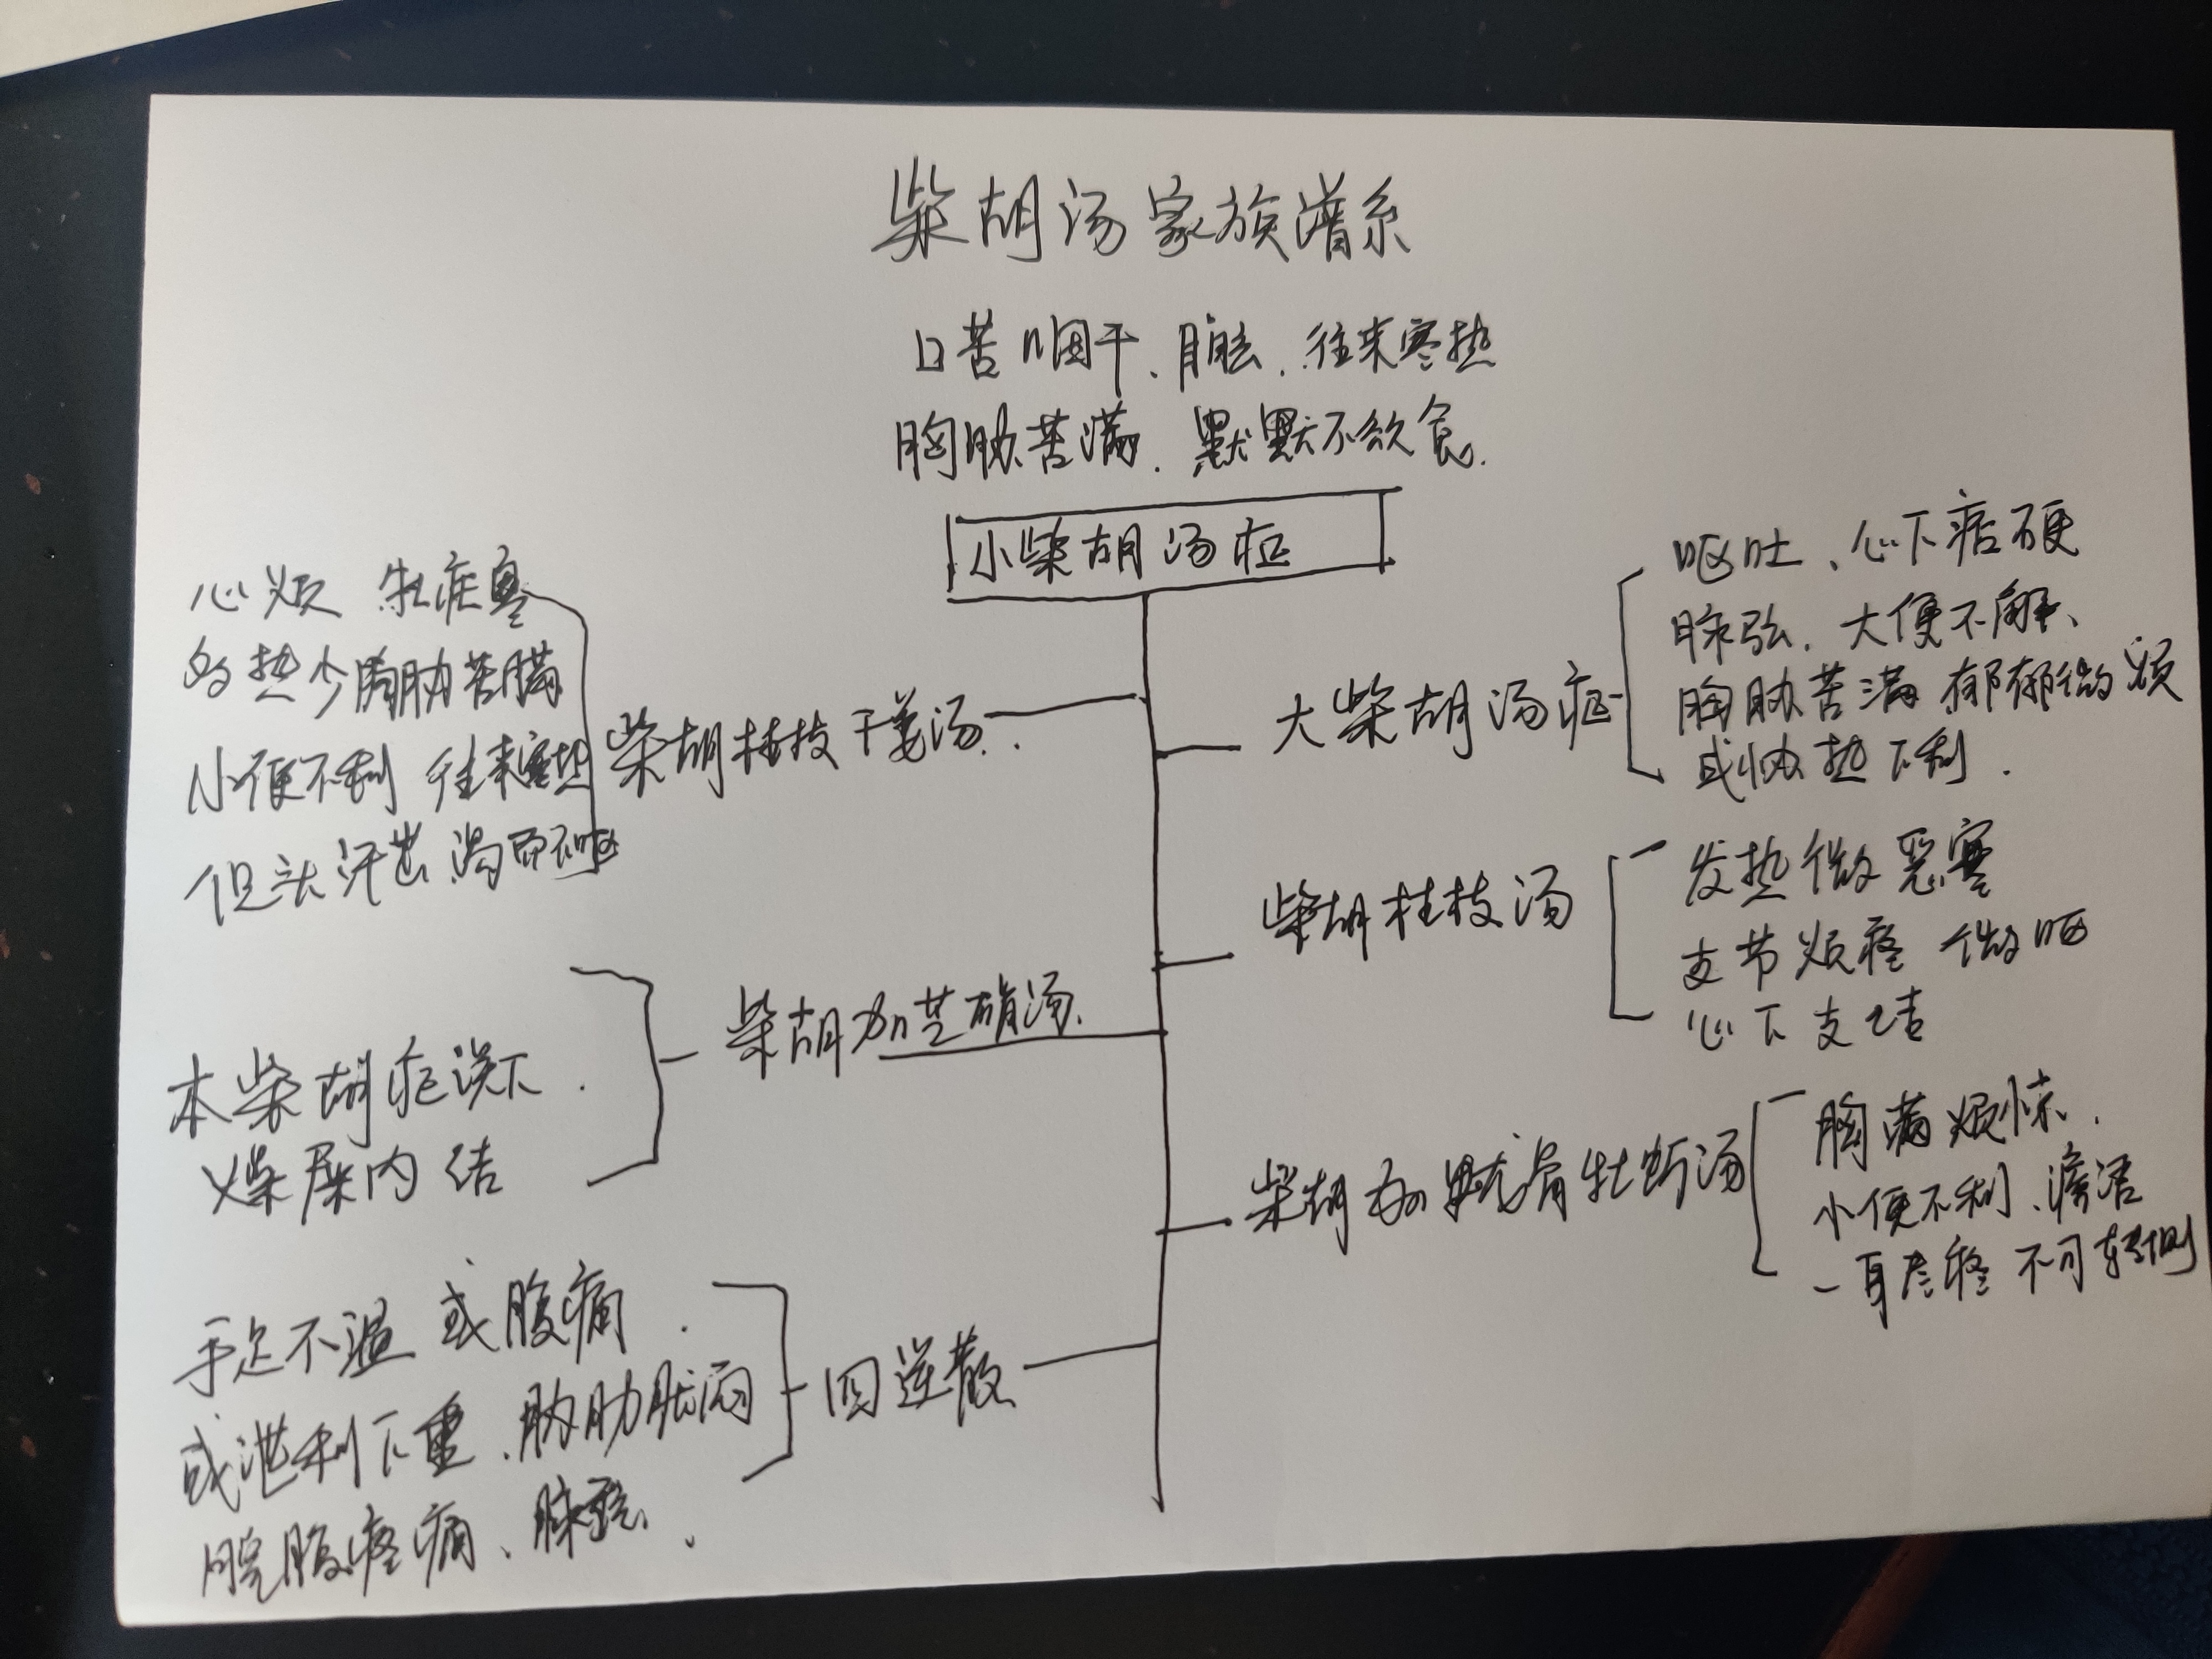 柴胡汤家族谱系
口苦咽干、目眩、往来寒热
胸胁苦满、默默不欲食.
小柴胡汤症
大柴胡汤症
呕吐、心下痞硬
脉弦、大便不解、
胸胁苦满 郁郁微烦
或协热下利.
柴胡桂枝汤
发热微恶寒
支节烦疼 微呕
心下支结
柴胡加龙骨牡蛎汤
胸满烦惊.
小便不利、谵语
一身尽疼 不可转侧
柴胡桂枝干姜汤.
心烦 牡疟寒
多热少胸胁苦满
小便不利 往来寒热
但头汗出 渴而不呕
柴胡加芒硝汤.
本柴胡症误下.
燥屎内结
四逆散
手足不温 或腹痛.
或泄利下重、胸肋胀闷
脘腹疼痛、脉弦.